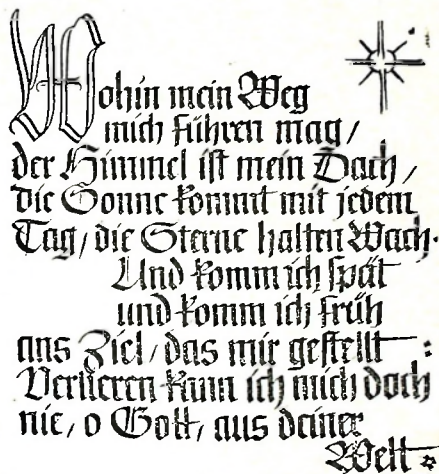 Wohin mein Weg
mich führen mag/
der Himmel ist mein Dach/
die Sonne kommt mit jedem
Tag/die Sterne halten Wach.
Und komm ich spät
und komm ich früh
ans Ziel/das mir gestellt:
Verlieren kann ich mich doch
nie/o Gott/aus deiner
Welt